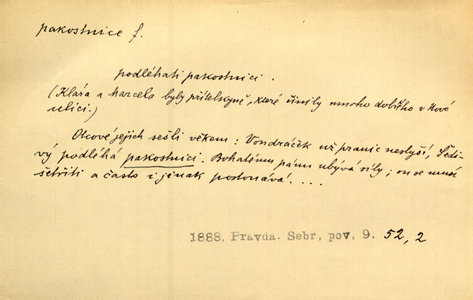 pakostnice f.
podléhati pakostnici.
(Klára a Marcela byly přítelkyně, které činily mnoho dobrého v Nové
ulici.)
Otcové jejich sešli věkem: Vondráček už pranic neslyší, Šedi-
vý podléhá pakostnici. Bohatšímu pánu ubývá síly; on se musí
šetřiti a často i jinak postonává. ...
1888. Pravda. Sebr. pov. 9. 52, 2